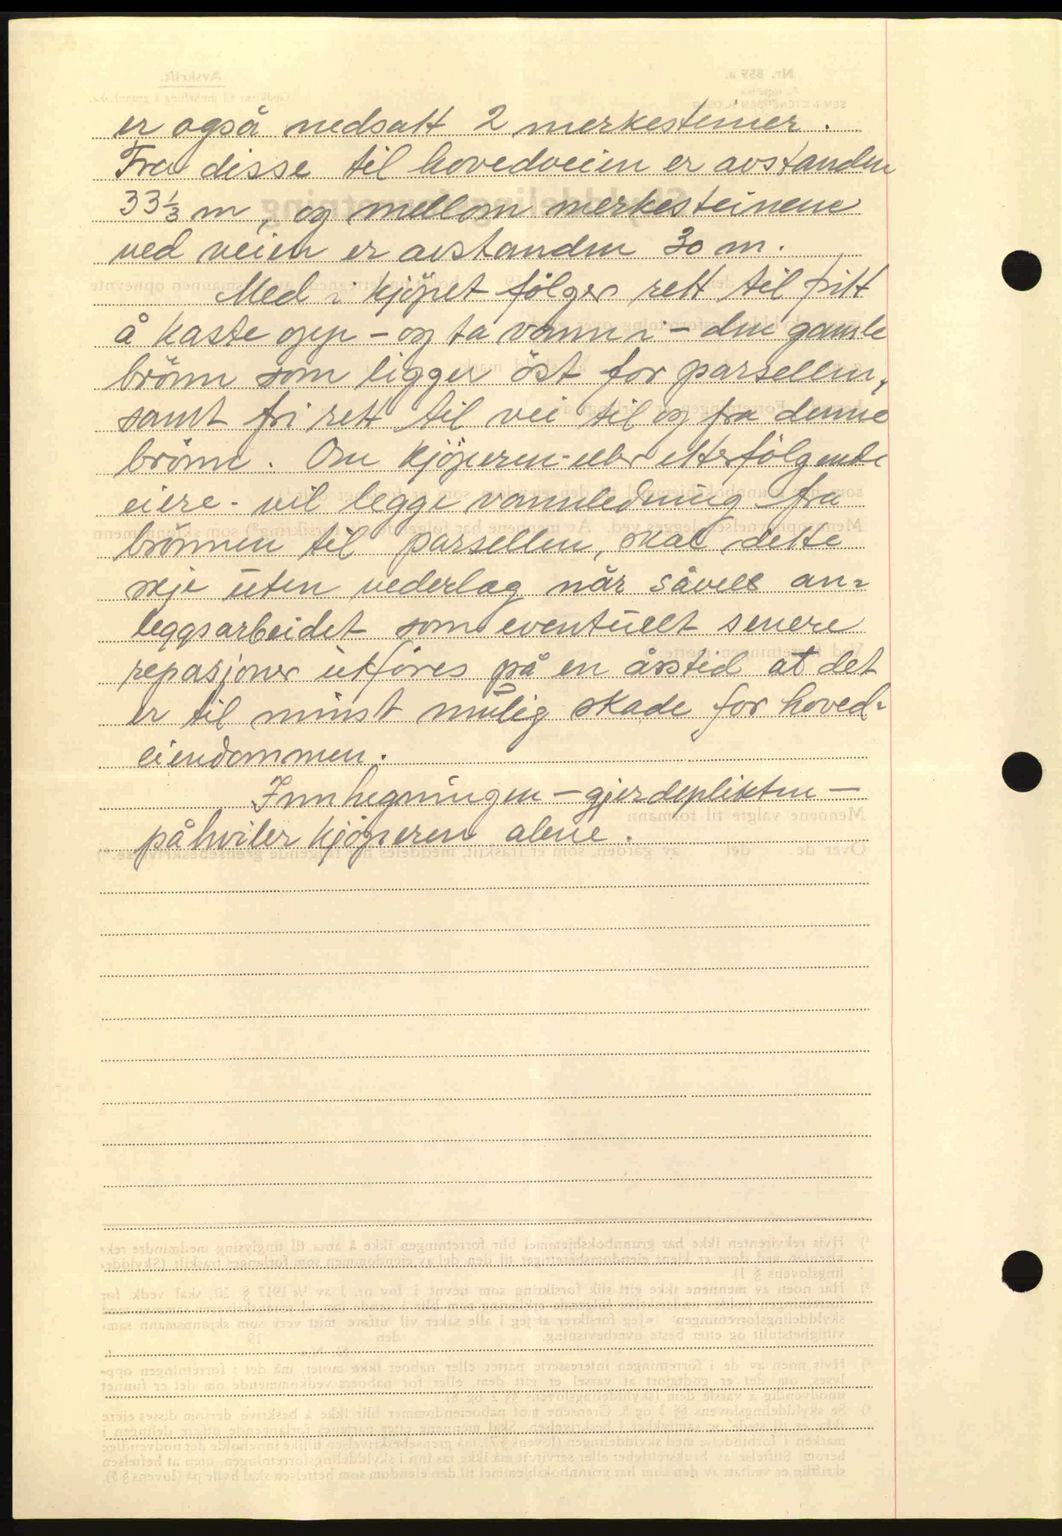 er også nedsatt 2 merkesteiner.
Fra disse til hovedveien er avstanden
33⅓ m, og mellom merkesteinene
ved veien er avstanden 30 m.
Med i kjöpet fölger rett til fritt
å kaste opp - og ta vann i - den gamle
brönn som ligger öst for parsellen,
samt fri rett til vei til og fra denne
brönn. Om kjöperen - eller etterfölgende
eiere - vil legge vannledning fra
brönnen til parsellen, skal dette
skje uten vederlag når såvel an-
leggsarbeidet som eventuelt senere
repasjoner utföres på en årstid at det
er til minst mulig skade for hoved-
eiendommen.
Innhegningen - gjerdeplikten -
påhviler kjöperen alene.